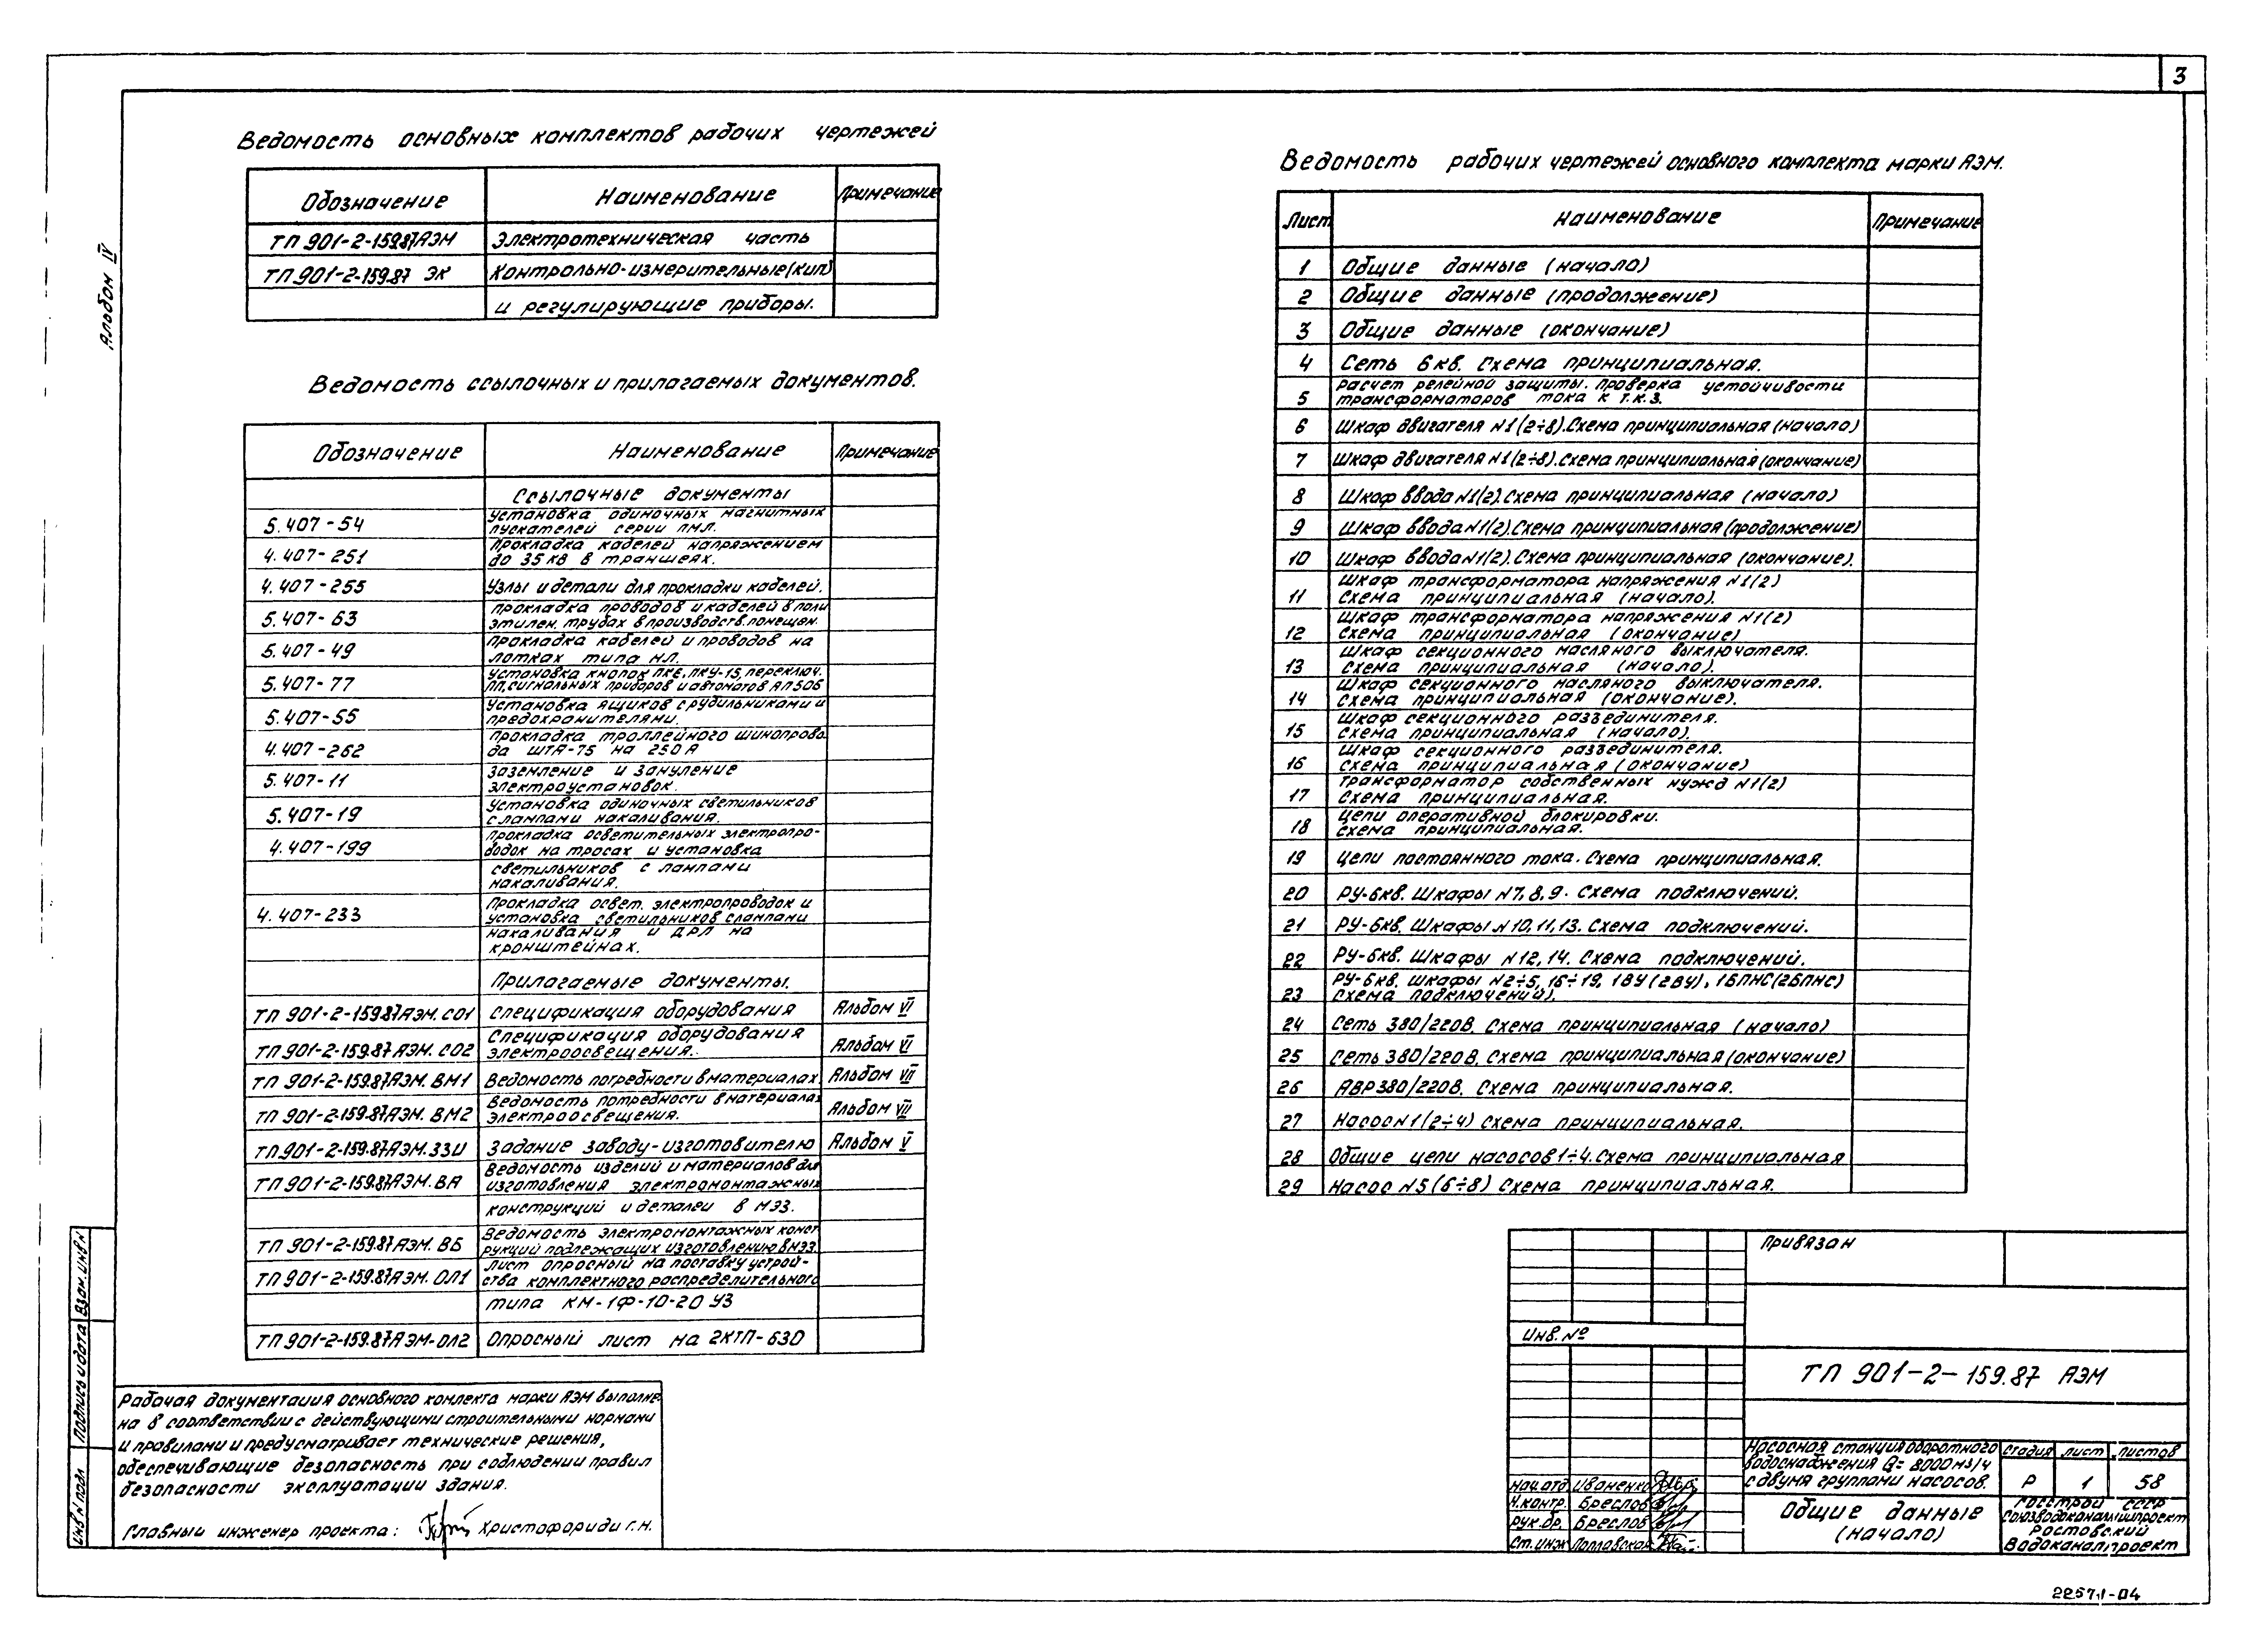 3
Альбом IV
Ведомость основных комплектов рабочих чертежей
Обозначение Наименование Примечание
ТП 901-2-159.87 АЭМ Электротехническая часть
ТП 901-2-159.87 ЭК Контрольно-измерительные (кип)
и регулирующие приборы.
Ведомость ссылочных и прилагаемых документов.
Обозначение Наименование Примечание
Ссылочные документы
5.407-54 Установка одиночных магнитных
пускателей серии ПМЛ.
4.407-251 Прокладка кабелей напряжением
до 35 кв в траншеях.
4.407-255 Узлы и детали для прокладки кабелей.
5.407-63 Прокладка проводов и кабелей в поли
этилен. трубах в производств. помещен.
5.407-49 Прокладка кабелей и проводов на
лотках типа НЛ.
5.407-77 Установка кнопок ПКЕ, ПКУ-15, переключ.
ПП, сигнальных приборов и автоматов АП50Б
5.407-55 Установка ящиков с рубильниками и
предохранителями.
4.407-262 Прокладка троллейного шинопрово
да ШТА-75 на 250А
5.407-11 Заземление и зануление
электроустановок.
5.407-19 Установка одиночных светильников
с лампами накаливания.
4.407-199 Прокладка осветительных электропро-
водок на тросах и установка
светильников с лампами
накаливания.
4.407-233 Прокладка освет. электропроводок и
установка светильников с лампами
накаливания и ДРЛ на
кронштейнах.
Прилагаемые документы.
ТП 901-2-159.87 АЭМ. СО1 Спецификация оборудования Альбом VI
ТП 901-2-159.87 АЭМ. СО2 Спецификация оборудования
электроосвещения. Альбом VI
ТП 901-2-159.87 АЭМ. ВМ1 Ведомость потребности в материалах Альбом VII
ТП 901-2-159.87 АЭМ. ВМ2 Ведомость потребности в материалах
электроосвещения. Альбом VII
ТП 901-2-159.87 АЭМ. ЗЗИ Задание заводу-изготовителю Альбом V
ТП 901-2-159.87 АЭМ. ВА Ведомость изделий и материалов для
изготовления электромонтажных
конструкций и деталей в МЭЗ.
ТП 901-2-159.87 АЭМ. ВБ Ведомость электромонтажных конст
рукций подлежащих изготовлению в МЭЗ.
ТП 901-2-159.87 АЭМ. ОЛ1 Лист опросный на поставку устрой-
ства комплектного распределительного
типа КМ-1Ф-10-20 У3
ТП 901-2-159.87 АЭМ-ОЛ2 Опросный лист на 2КТП-630
Рабочая документация основного комлекта марки АЭМ выполне-
на в соответствии с действующими строительными нормами
и правилами и предусматривает технические решения,
обеспечивающие безопасность при соблюдении правил
безопасности эксплуатации здания.
Главный инженер проекта: Христофориди Г.Н.
Взам. инв N
Подпись и дата
Инв N подл
Ведомость рабочих чертежей основного комплекта марки АЭМ.
Лист Наименование Примечание
1 Общие данные (начало)
2 Общие данные (продолжение)
3 Общие данные (окончание)
4 Сеть 6 кв. Схема принципиальная.
5 Расчет релейной защиты. Проверка устойчивости
трансформаторов тока к т.к.з.
6 Шкаф двигателя N1(2÷8). Схема принципиальная (начало)
7 Шкаф двигателя N1(2÷8). Схема принципиальная (окончание)
8 Шкаф ввода N1(2). Схема принципиальная (начало)
9 Шкаф ввода N1(2). Схема принципиальная (продолжение)
10 Шкаф ввода N1(2). Схема принципиальная (окончание).
11 Шкаф трансформатора напряжения N1(2)
Схема принципиальная (начало).
12 Шкаф трансформатора напряжения N1(2)
Схема принципиальная (окончание)
13 Шкаф секционного масляного выключателя.
Схема принципиальная (начало).
14 Шкаф секционного масляного выключателя.
Схема принципиальная (окончание).
15 Шкаф секционного разъединителя.
Схема принципиальная (начало).
16 Шкаф секционного разъединителя.
Схема принципиальная (окончание)
17 Трансформатор собственных нужд N1(2)
Схема принципиальная.
18 Цепи оперативной блокировки.
Схема принципиальная.
19 Цепи постоянного тока. Схема принципиальная.
20 РУ-6кв. Шкафы N7,8,9. Схема подключений.
21 РУ-6кв. Шкафы N10,11,13. Схема подключений.
22 РУ-6кв. Шкафы N12,14. Схема подключений.
23 РУ-6кв. Шкафы N2÷5, 16÷19, 1ВУ(2ВУ), 1БПНС(2БПНС)
Схема подключений).
24 Сеть 380/220В. Схема принципиальная (начало)
25 Сеть 380/220В. Схема принципиальная (окончание)
26 АВР 380/220В. Схема принципиальная.
27 Насос N1(2÷4) Схема принципиальная.
28 Общие цепи насосов 1÷4. Схема принципиальная
29 Насос N5(6÷8) Схема принципиальная.
Привязан
Инв. №
ТП 901-2-159.87 АЭМ
Насосная станция оборотного
водоснабжения Q= 8000 м3/ч
с двумя группами насосов.
Стадия Лист Листов
Р 1 58
Нач. отд Иваненко
Н. контр. Бреслов
Рук. бр. Бреслов
Ст. инж
Общие данные
(начало)
Госстрой СССР
Союзводоканалниипроект
Ростовский
Водоканалпроект
22571-04